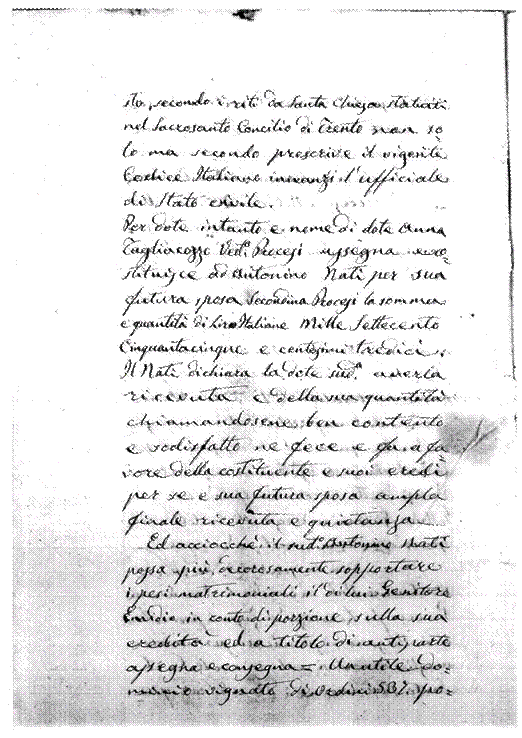 sto, secondo i riti da Santa Chiesa statuiti
nel Sacrosanto Concilio di Trento non so
lo ma secondo prescrive il vigente
Codice Italiano innanzi l'ufficiale
di Stato civile.
Per dote intanto e nome di dote Anna
Tagliacozzo Ved.ª Procesi assegna e co=
stituisce ad Antonino Nati per sua
futura sposa Secondina Procesi la somma
e quantità di Lire Italiane Mille Settecento
Cinquantacinque e centesimi tredici.
Il Nati dichiara la dote sud.ª averla
ricevuta e della sua quantità
chiamandosene ben contento
e sodisfatto ne fece e fa a fa=
vore della costituente e suoi eredi
per se e sua futura sposa ampla
finale ricevuta e quietanza
Ed acciocchè il sud.º Antonino Nati
possa più decorosamente sopportare
i pesi matrimoniali il di lui Genitore
in conto di porzione sulla sua
eredità ed a titolo di antiparte
assegna e consegna = Un utile do=
minio vignato di ordini 537. po=